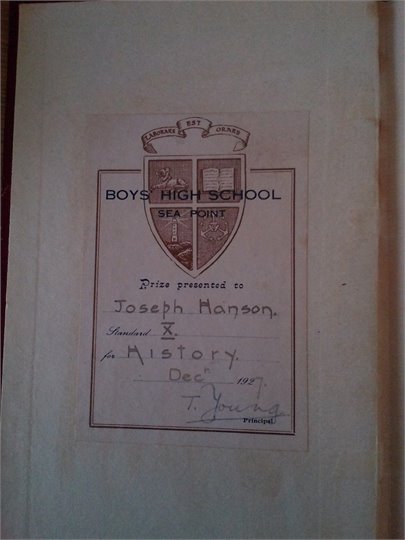 LABORARE EST ORARE
BOYS' HIGH SCHOOL
SEA POINT
Prize presented to
Joseph Hanson.
Standard X.
for History.
Decr 1927.
T. Young
Principal.